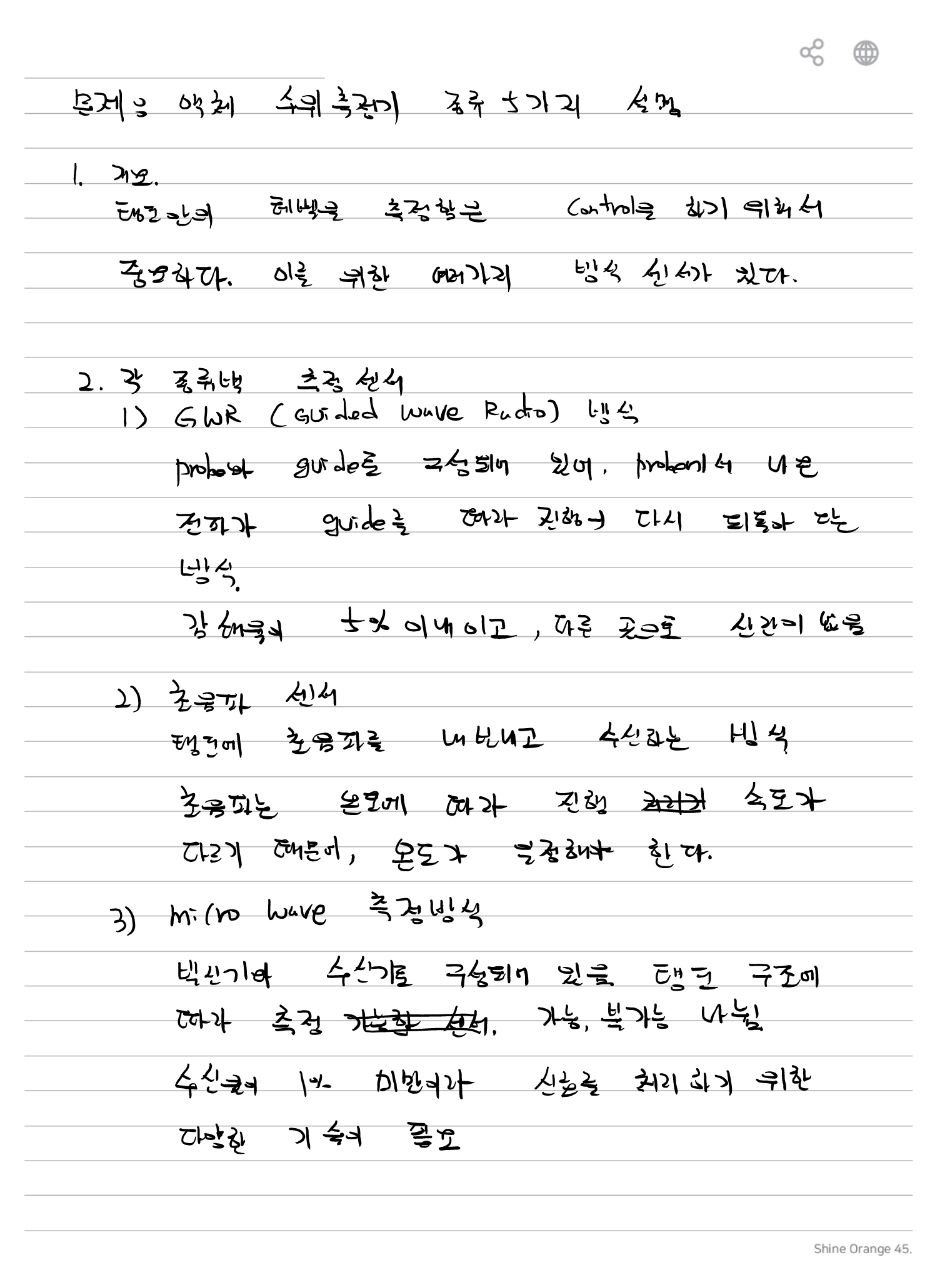 문제 : 액체 수위측정기 종류 5가지 설명
1. 개요.
탱크안의 레벨을 측정함은 Control을 하기 위해서
중요하다. 이를 위한 여러가지 방식 센서가 있다.
2. 각 종류별 측정 센서
1) GWR (Guided wave Radio) 방식
probe와 guide로 구성되어 있어, probe에서 나온
전파가 guide를 따라 진행 다시 되돌아 오는
방식.
감쇄율이 5% 이내이고, 다른 곳으로 산란이 없음
2) 초음파 센서
탱크에 초음파를 내보내고 수신하는 방식
초음파는 온도에 따라 진행 속도가
다르기 때문에, 온도가 일정해야 한다.
3) micro wave 측정방식
발신기와 수신기로 구성되어 있음. 탱크 구조에
따라 측정 가능, 불가능 나뉨
수신율이 1% 미만이라 신호를 처리하기 위한
다양한 기술이 필요
Shine Orange 45.